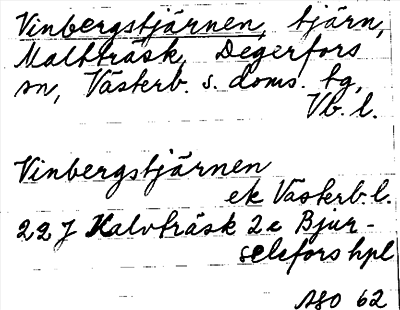 Vinbergstjärnen, tjärn,
Malbträsk, Degerfors
sn, Västerb. s. doms. tg,
Vb. l.
Vinbergstjärnen
ek Västerb. l.
22 J Kalvträsk 2e Bjur-
selefors hpl
ASO 62